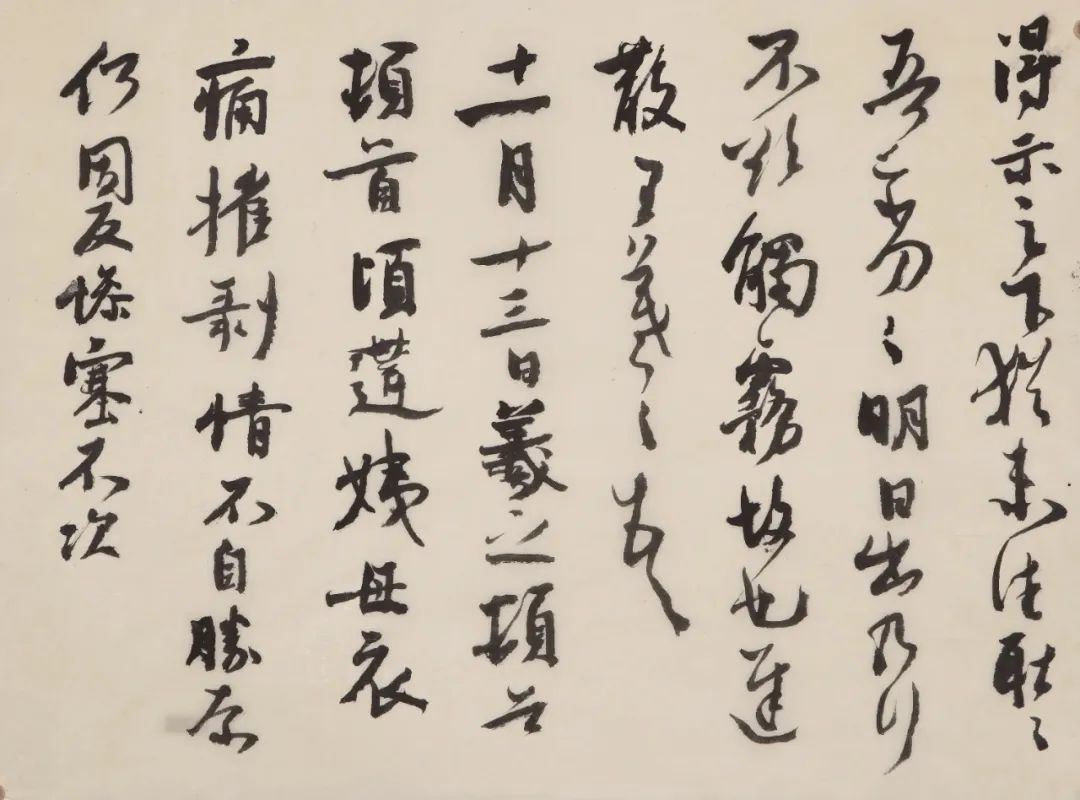 得示知足下猶未佳耿〻
吾亦劣〻明日出乃行
不欲觸霧故也遲
散王羲之頓首
十一月十三日羲之頓首
頓首頃遘姨母哀
痛摧剝情不自勝奈
何因反慘塞不次